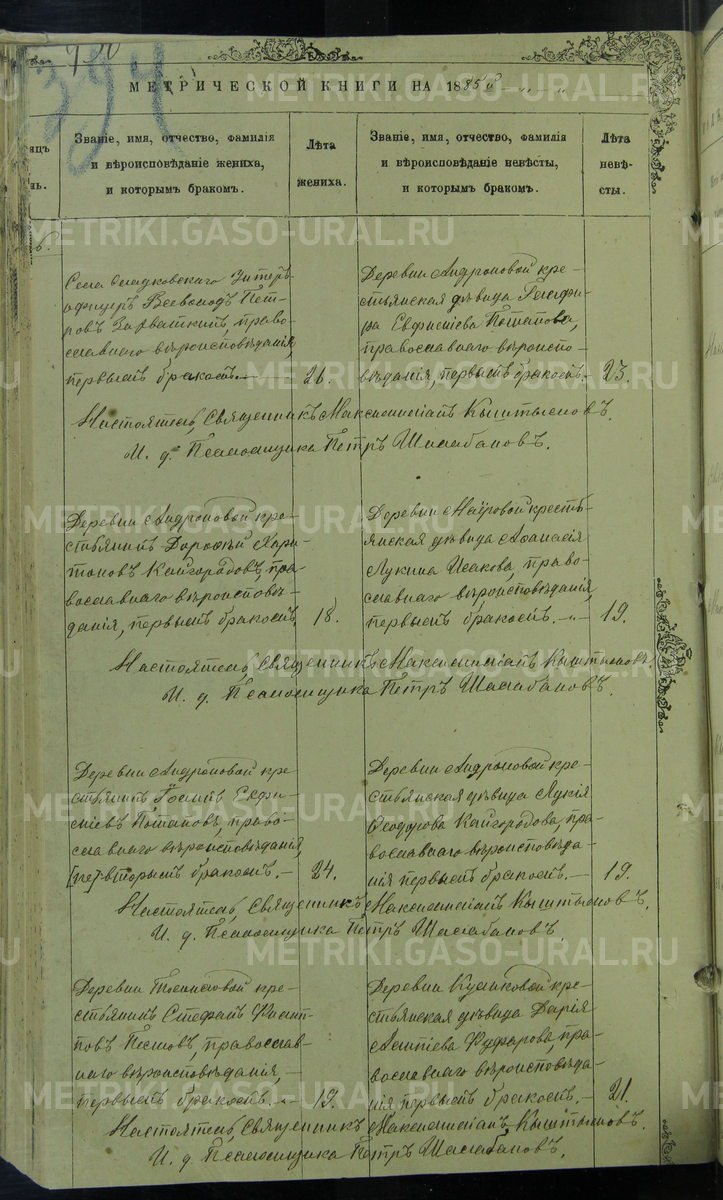 394
МЕТРИЧЕСКОЙ КНИГИ НА 1885й
METRIKI.GASO-URAL.RU
Званіе, имя, отчество, фамилія
и вѣроисповѣданіе жениха,
и которымъ бракомъ.
Лѣта
жениха.
Званіе, имя, отчество, фамилія
и вѣроисповѣданіе невѣсты,
и которымъ бракомъ.
Лѣта
невѣ-
сты.
Села Сладковскаго Унтеръ-
офицеръ Всеволодъ Пет-
ровъ право-
славнаго вѣроисповѣданія,
первымъ бракомъ.
26.
Деревни Андроновой кре-
стьянская дѣвица Глафи-
ра Евфиміева Потапова,
православнаго вѣроиспо-
вѣданія, первымъ бракомъ.
23.
Настоятель, Священникъ Максимиліанъ Кыштымовъ.
И. д. Псаломщика Петръ Шалабановъ.
Деревни Андроновой кре-
стьянинъ Дорофей Хари-
тоновъ Кайгородовъ, пра-
вославнаго вѣроисповѣ-
данія, первымъ бракомъ.
18.
Деревни Маіровой кресть-
янская дѣвица Аѳанасія
Лукина Исакова, право-
славнаго вѣроисповѣданія,
первымъ бракомъ.
19.
Настоятель, Священникъ Максимиліанъ Кыштымовъ.
И. д. Псаломщика Петръ Шалабановъ.
Деревни Андроновой кре-
стьянинъ Іоаннъ Евфи-
міевъ Потаповъ, право-
славнаго вѣроисповѣданія,
[пе] вторымъ бракомъ.
24.
Деревни Андроновой кре-
стьянская дѣвица Лукія
Ѳеодорова Кайгородова, пра-
вославнаго вѣроисповѣда-
нія первымъ бракомъ.
19.
Настоятель, Священникъ Максимиліанъ Кыштымовъ.
И. д. Псаломщика Петръ Шалабановъ.
Деревни кре-
стьянинъ Стефанъ Филип-
повъ Пестовъ, православ-
наго вѣроисповѣданія,
первымъ бракомъ.
19.
Деревни Куликовой кре-
стьянская дѣвица Дарія
православнаго вѣроисповѣда-
нія первымъ бракомъ.
21.
Настоятель, Священникъ Максимиліанъ Кыштымовъ.
И. д. Псаломщика Петръ Шалабановъ.